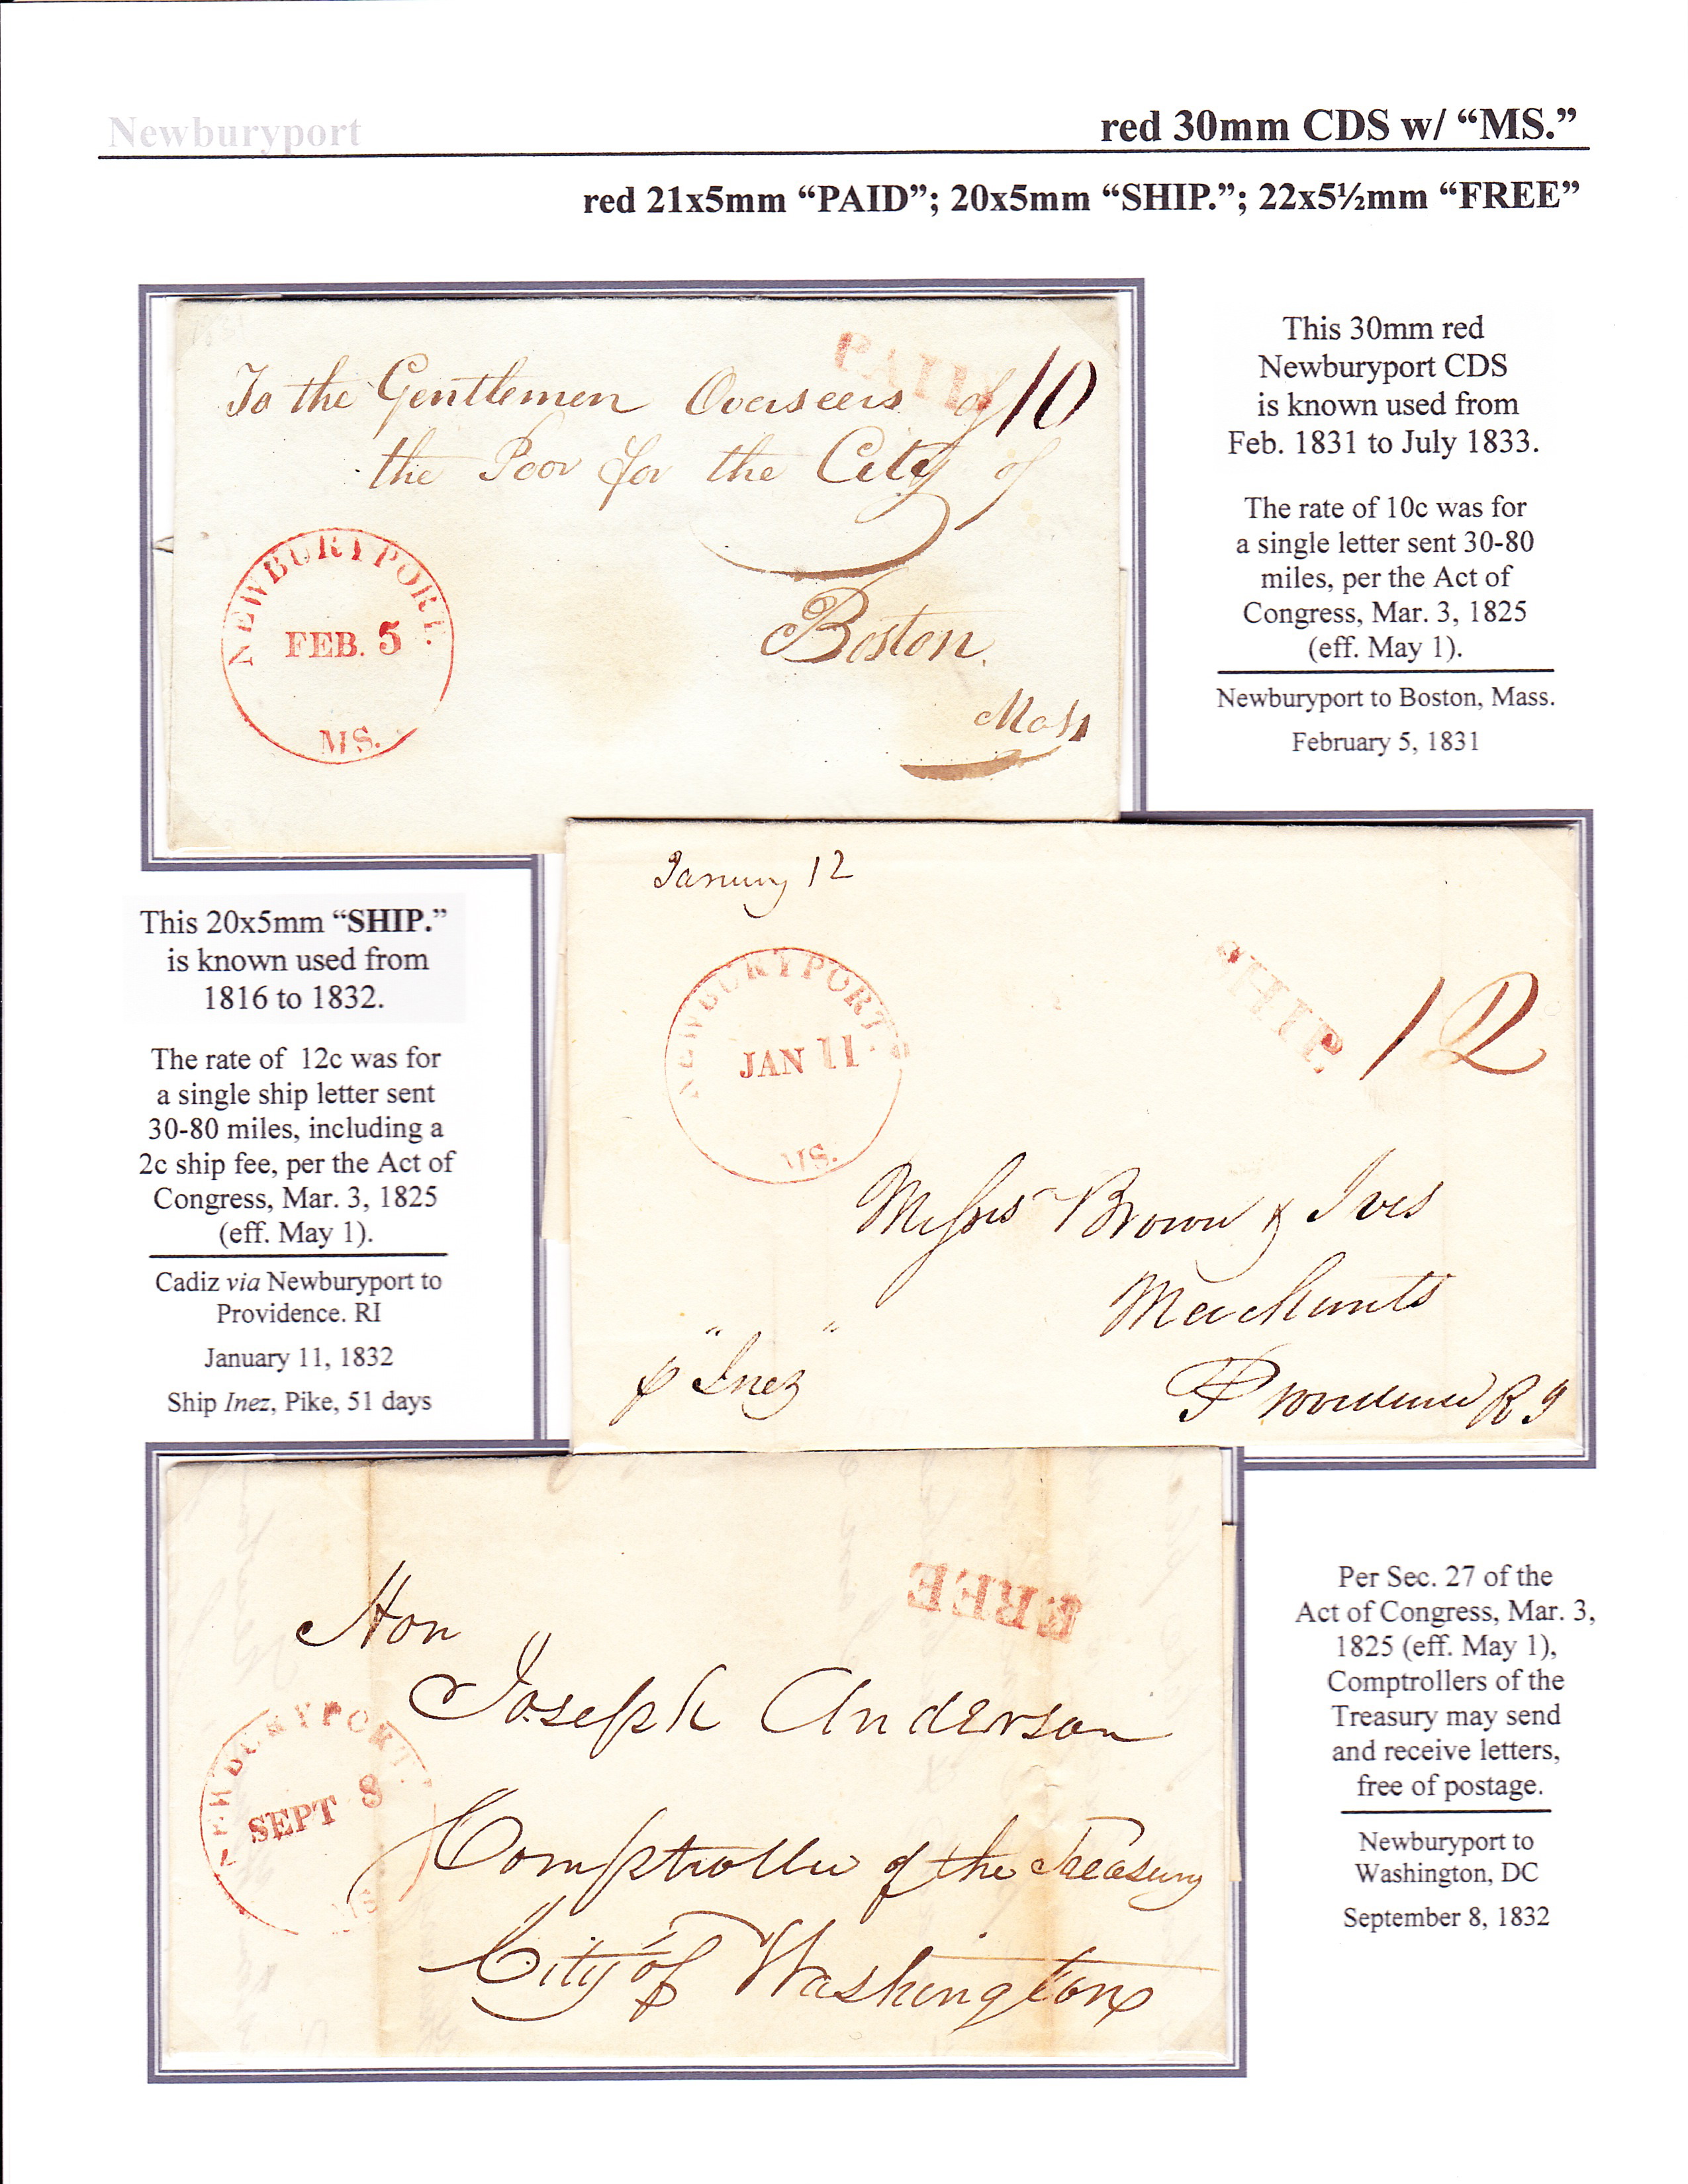 Newburyport
red 30mm CDS w/ “MS.”
red 21x5mm “PAID”; 20x5mm “SHIP.”; 22x5½mm “FREE”
PAID
To the Gentlemen Overseers of 10
the Poor for the City of
Boston.
Mass
NEWBURYPORT.
FEB. 5
MS.
This 30mm red
Newburyport CDS
is known used from
Feb. 1831 to July 1833.
The rate of 10c was for
a single letter sent 30-80
miles, per the Act of
Congress, Mar. 3, 1825
(eff. May 1).
Newburyport to Boston, Mass.
February 5, 1831
January 12
NEWBURYPORT.
JAN 11
MS.
SHIP.
12
Messrs Brown & Ives
Merchants
Providence R I
p "Inez"
This 20x5mm “SHIP.”
is known used from
1816 to 1832.
The rate of 12c was for
a single ship letter sent
30-80 miles, including a
2c ship fee, per the Act of
Congress, Mar. 3, 1825
(eff. May 1).
Cadiz via Newburyport to
Providence. RI
January 11, 1832
Ship Inez, Pike, 51 days
FREE
Hon
Joseph Anderson
Comptroller of the Treasury
City of Washington
NEWBURYPORT.
SEPT 8
MS
Per Sec. 27 of the
Act of Congress, Mar. 3,
1825 (eff. May 1),
Comptrollers of the
Treasury may send
and receive letters,
free of postage.
Newburyport to
Washington, DC
September 8, 1832